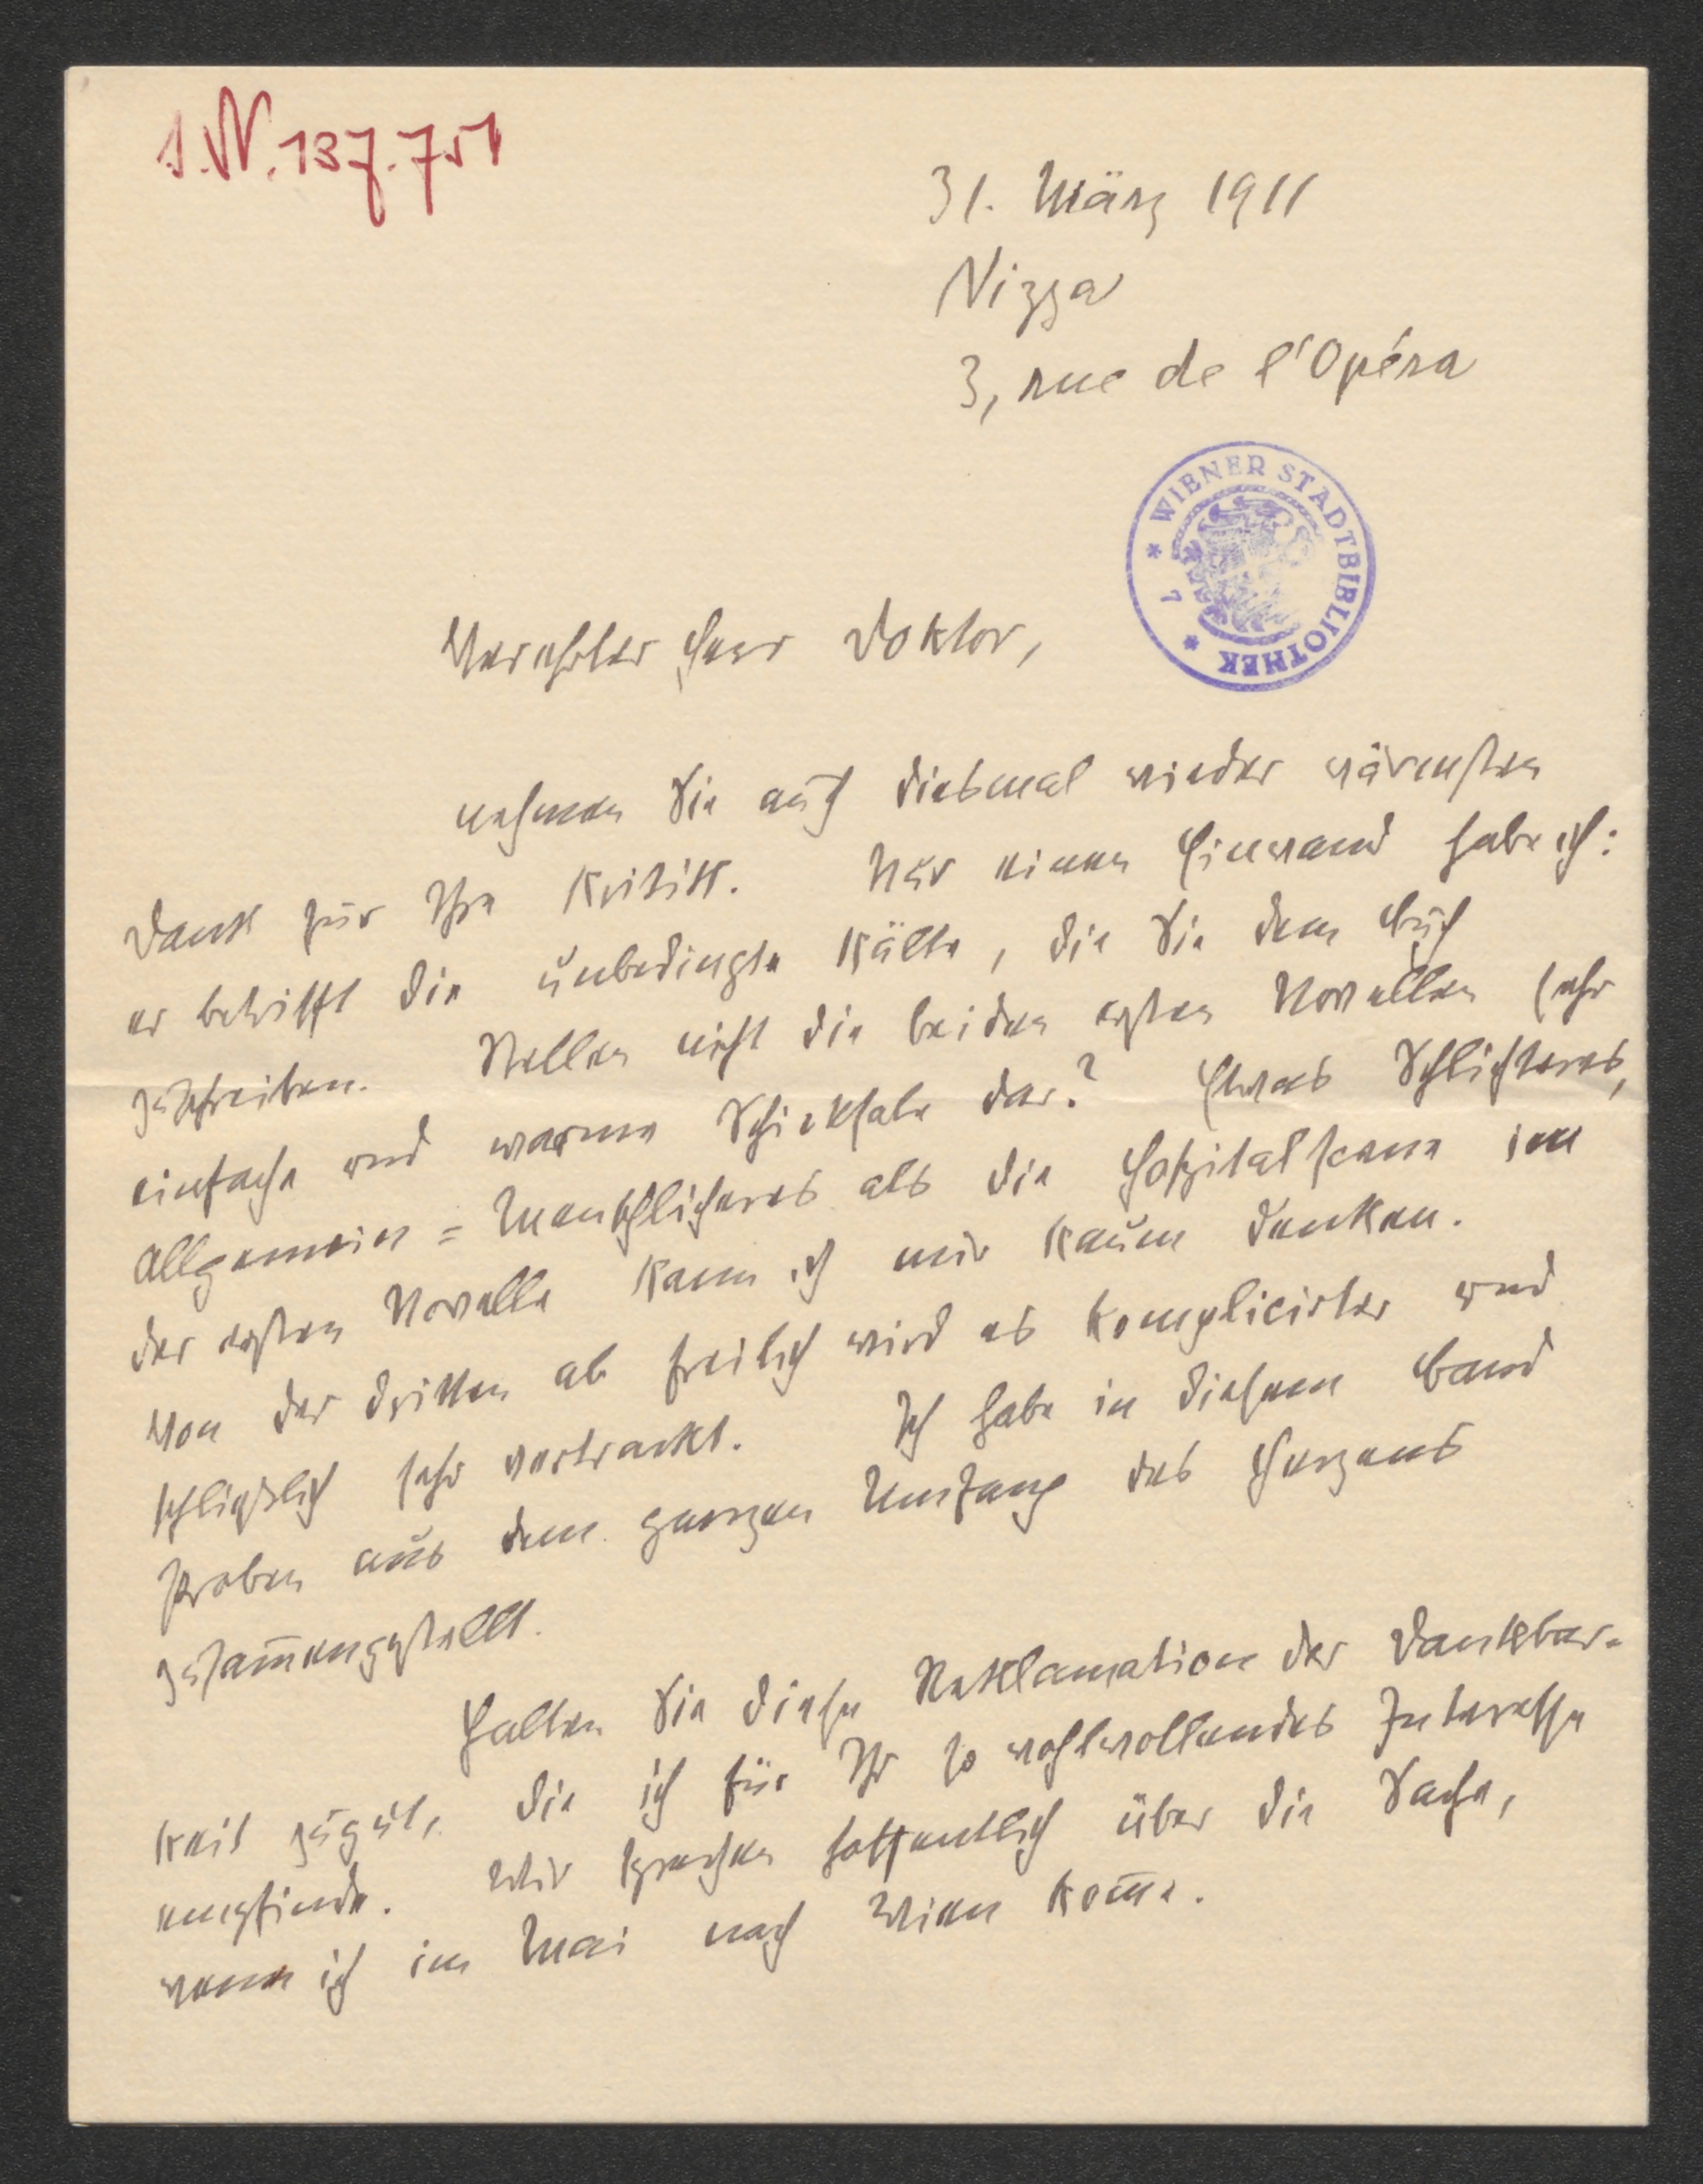 I.N. 137.751
31. März 1911
Nizza
3, rue de l'Opéra
WIENER STADTBIBLIOTHEK
7
Verehrter Herr Doktor,
nehmen Sie auch diesmal wieder wärmsten
Dank für Ihre Kritik. Nur einen Einwand habe ich:
er betrifft die unbedingte Kälte, die Sie dem Buch
zuschreiben. Stellen nicht die beiden ersten Novellen sehr
einfache und warme Schicksale dar? Etwas Schlichteres,
Allgemein=Menschlicheres als die Hospitalscene in
der ersten Novelle kann ich mir kaum denken.
Von der dritten ab freilich wird es komplicirter und
schließlich sehr vertrackt. Ich habe in diesem Band
Proben aus dem ganzen Umfang des Herzens
zusam̅engestellt.
Halten Sie diese Reklamation der Dankbar-
keit zugut, die ich für Ihr so wohlwollendes Interesse
empfinde. Wir sprechen hoffentlich über die Sache,
wenn ich im Mai nach Wien kom̅e.